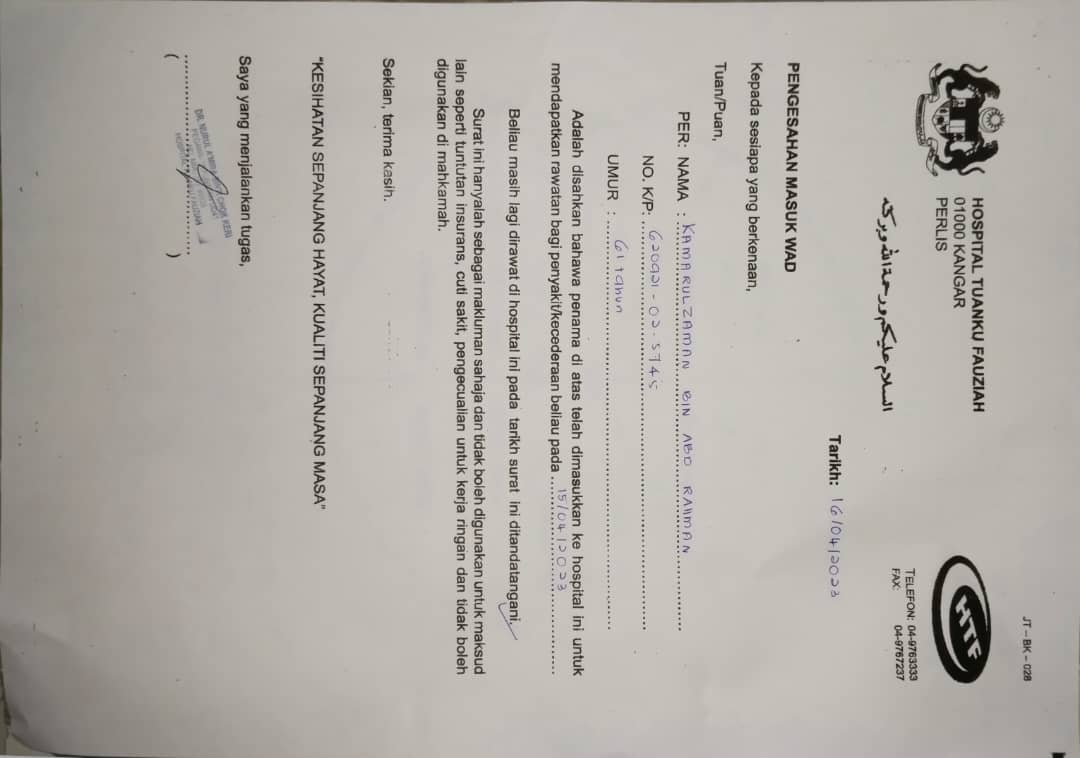 JT – BK – 028
HOSPITAL TUANKU FAUZIAH
01000 KANGAR
PERLIS
HTF
TELEFON: 04-9763333
FAX: 04-9767237
السلام عليكم ورحمة الله وبركته
Tarikh: 16/04/2023
PENGESAHAN MASUK WAD
Kepada sesiapa yang berkenaan,
Tuan/Puan,
PER: NAMA : KAMARULZAMAN BIN ABD RAHMAN
NO. K/P: 620921-02-5745
UMUR : 61 tahun
Adalah disahkan bahawa penama di atas telah dimasukkan ke hospital ini untuk
mendapatkan rawatan bagi penyakit/kecederaan beliau pada 15/04/2023
Beliau masih lagi dirawat di hospital ini pada tarikh surat ini ditandatangani.
Surat ini hanyalah sebagai makluman sahaja dan tidak boleh digunakan untuk maksud
lain seperti tuntutan insurans, cuti sakit, pengecualian untuk kerja ringan dan tidak boleh
digunakan di mahkamah.
Sekian, terima kasih.
"KESIHATAN SEPANJANG HAYAT, KUALITI SEPANJANG MASA"
Saya yang menjalankan tugas,
DR. NURUL A'MIRA BINTI CHOK KERI
HOSPITAL TUANKU FAUZIAH
( )